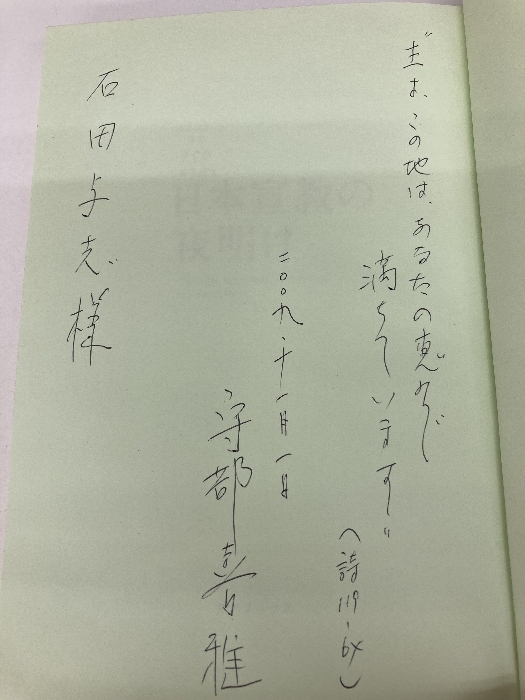 "主よ、この地は、あなたの恵みで
満ちています"
(詩119・64)
二〇〇九、十一月一日
守部喜雅
石田与志様